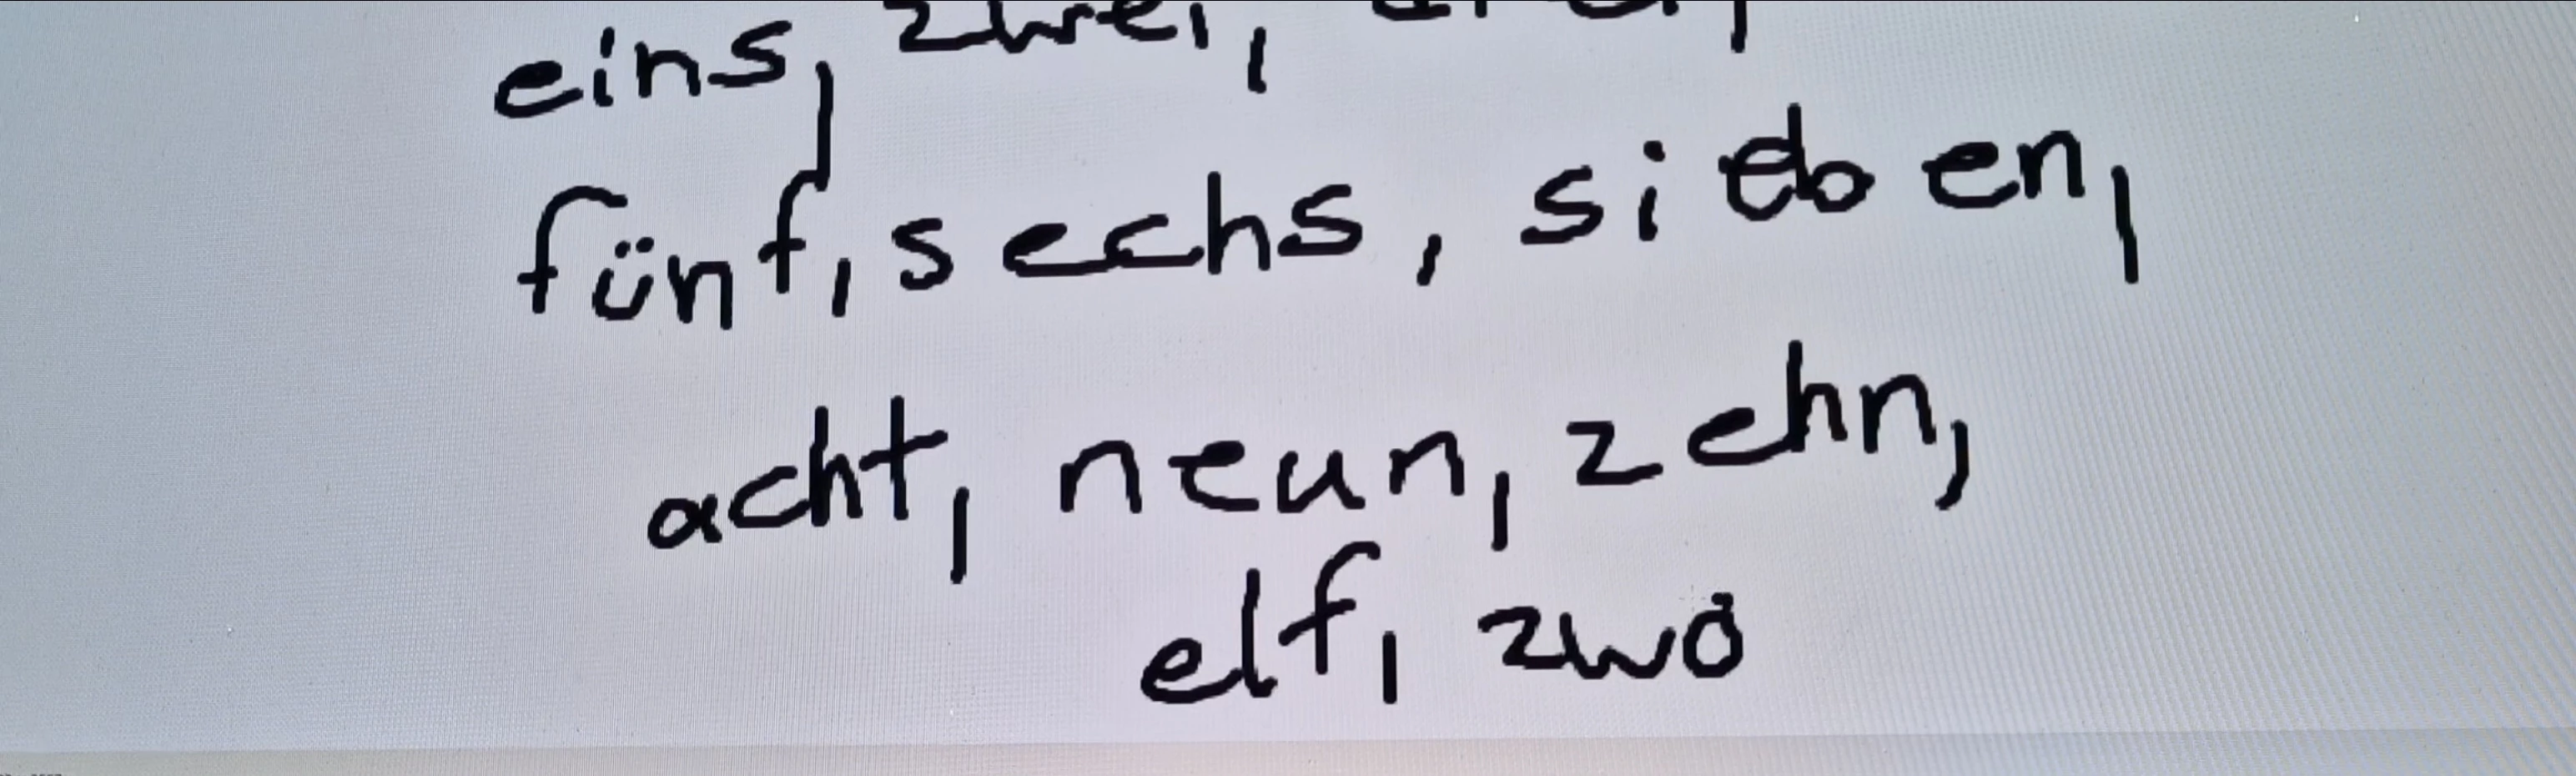 eins, zwei,
fünf, sechs, sieben,
acht, neun, zehn,
elf, zwö